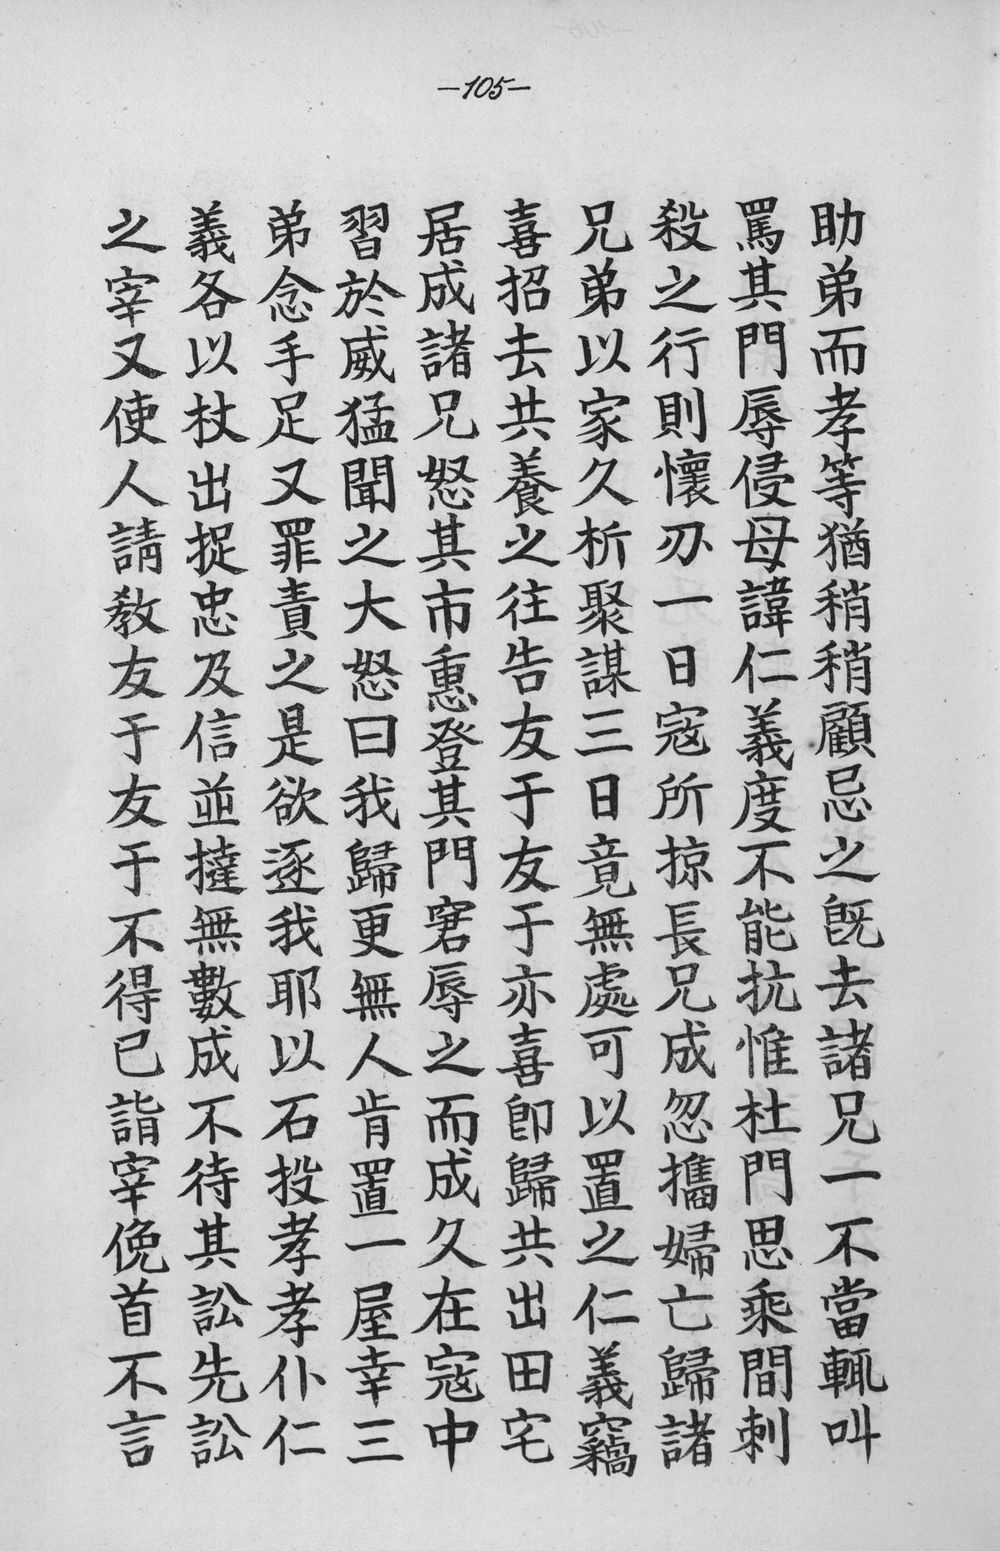 —105—
助弟而孝等猶稍稍顧忌之旣去諸兄一不當輒叫
罵其門辱侵母諱仁義度不能抗惟杜門思乘間刺
殺之行則懷刃一日寇所掠長兄成忽攜婦亡歸諸
兄弟以家久析聚謀三日竟無處可以置之仁義竊
喜招去共養之往告友于友于亦喜卽歸共出田宅
居成諸兄怒其市惠登其門窘辱之而成久在寇中
習於威猛聞之大怒曰我歸更無人肯置一屋幸三
弟念手足又罪責之是欲逐我耶以石投孝孝仆仁
義各以杖出捉忠及信並撻無數成不待其訟先訟
之宰又使人請教友于友于不得已詣宰俛首不言